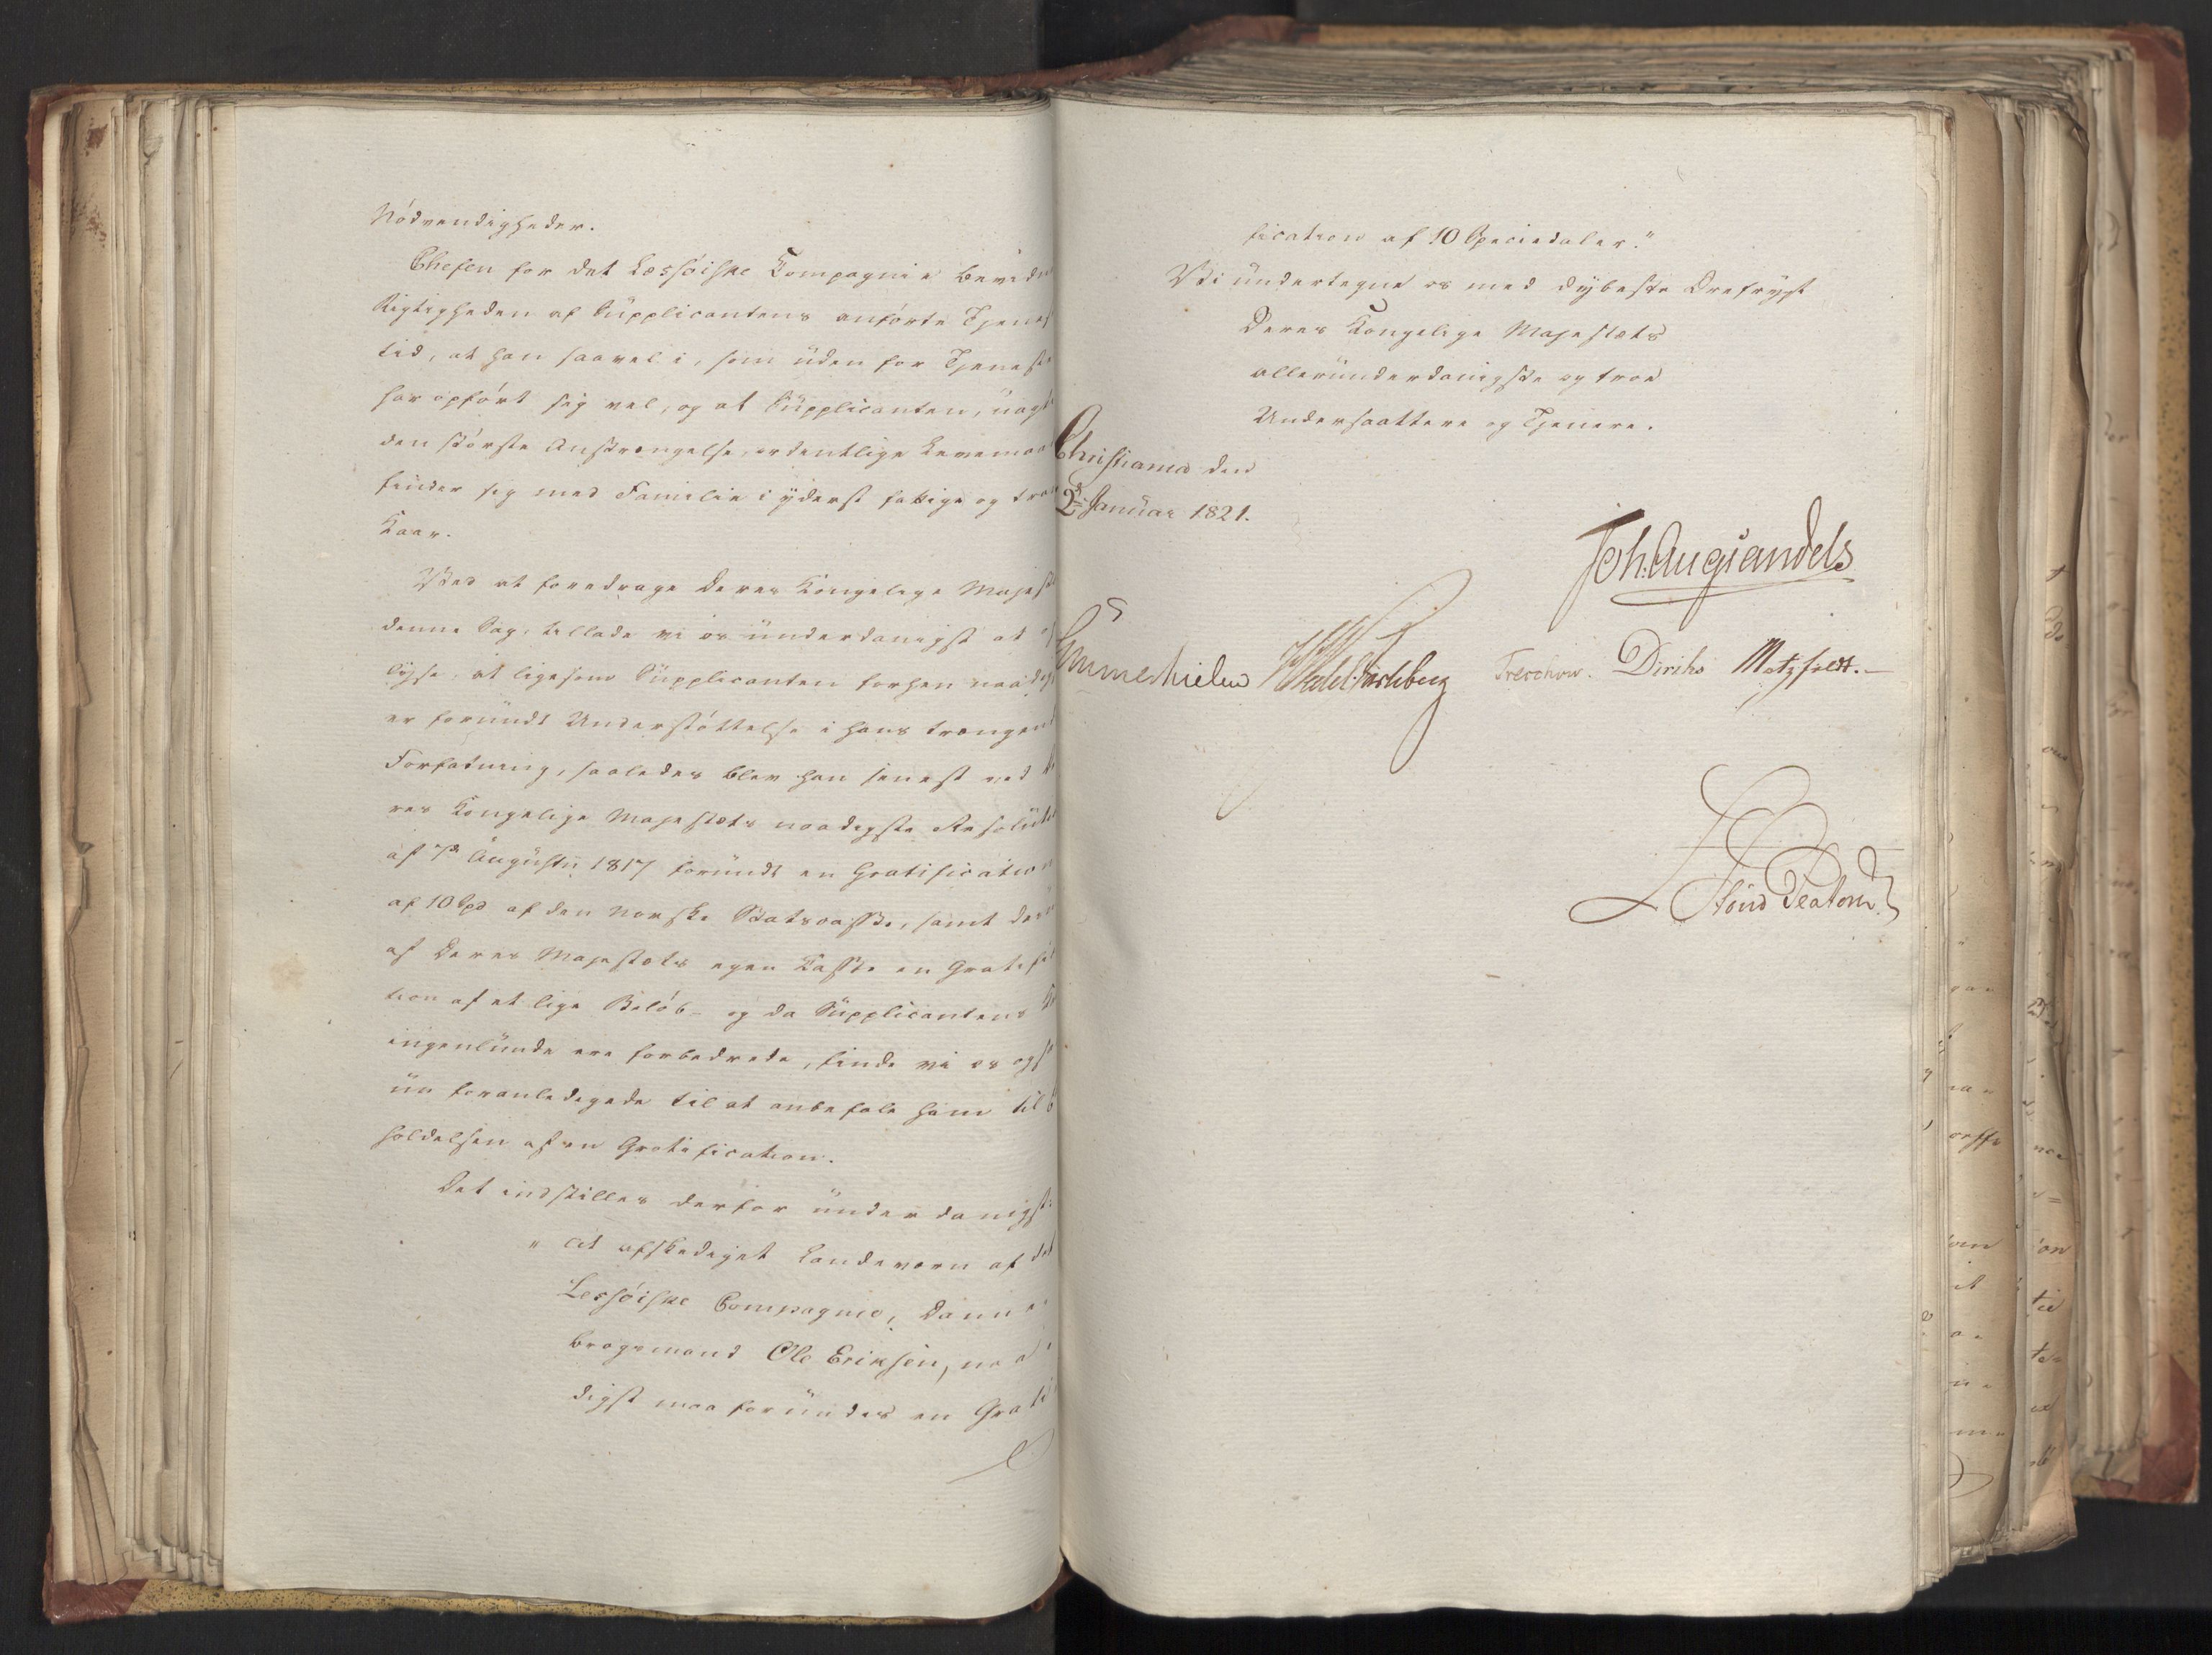 Nödvendigheder.
Chefen for det Læssöiske Compagnie bevidn
Rigtigheden af Supplicantens anförte Tjenes
tid, at han saavel i, som uden for Tjeneste
har opfört sig vel, og at Supplicanten, uagt
den störste Anstrængelse, ordentlige Levemaa
finder sig med Familie i yderst fattige og tran
Kaar.
Ved at foredrage Deres Kongelige Majest
denne Sag, tillade vi os underdanigst at
lyse, at ligesom Supplicanten forhen naadigs
er forundt Understöttelse i hans trængen
Forfatning, saaledes blev han senest ved De
res Kongelige Majestæts naadigste Resoluti
af 7de Augustii 1817 forundt en Gratification
af 10 Spd af den norske Statscasse, samt des
af Deres Majestæts egen Casse en Gratifi
tion af et lige Belöb – og da Supplicantens
ingenlunde ere forbedrede, finde vi os ogs
nu foranledigede til at anbefale ham til
holdelsen af en Gratification.
Det indstilles derfor underdanigst:
" at afskediget Landeværn af det
Lessöiske Compagnie, Danne
brogsmand Ole Eriksen, naa
digst maa forundes en Grati
fication af 10 Speciedaler."
Vi undertegne os med dybeste Ærefrygt
Deres Kongelige Majestæts
allerunderdanigste og troe
Undersaattere og Tjenere.
Christiania den
2de Januar 1821.
Joh. Aug. Sandels
Sommerhielm Wedel Jarlsberg Treschow. Diriks Motzfeldt.—